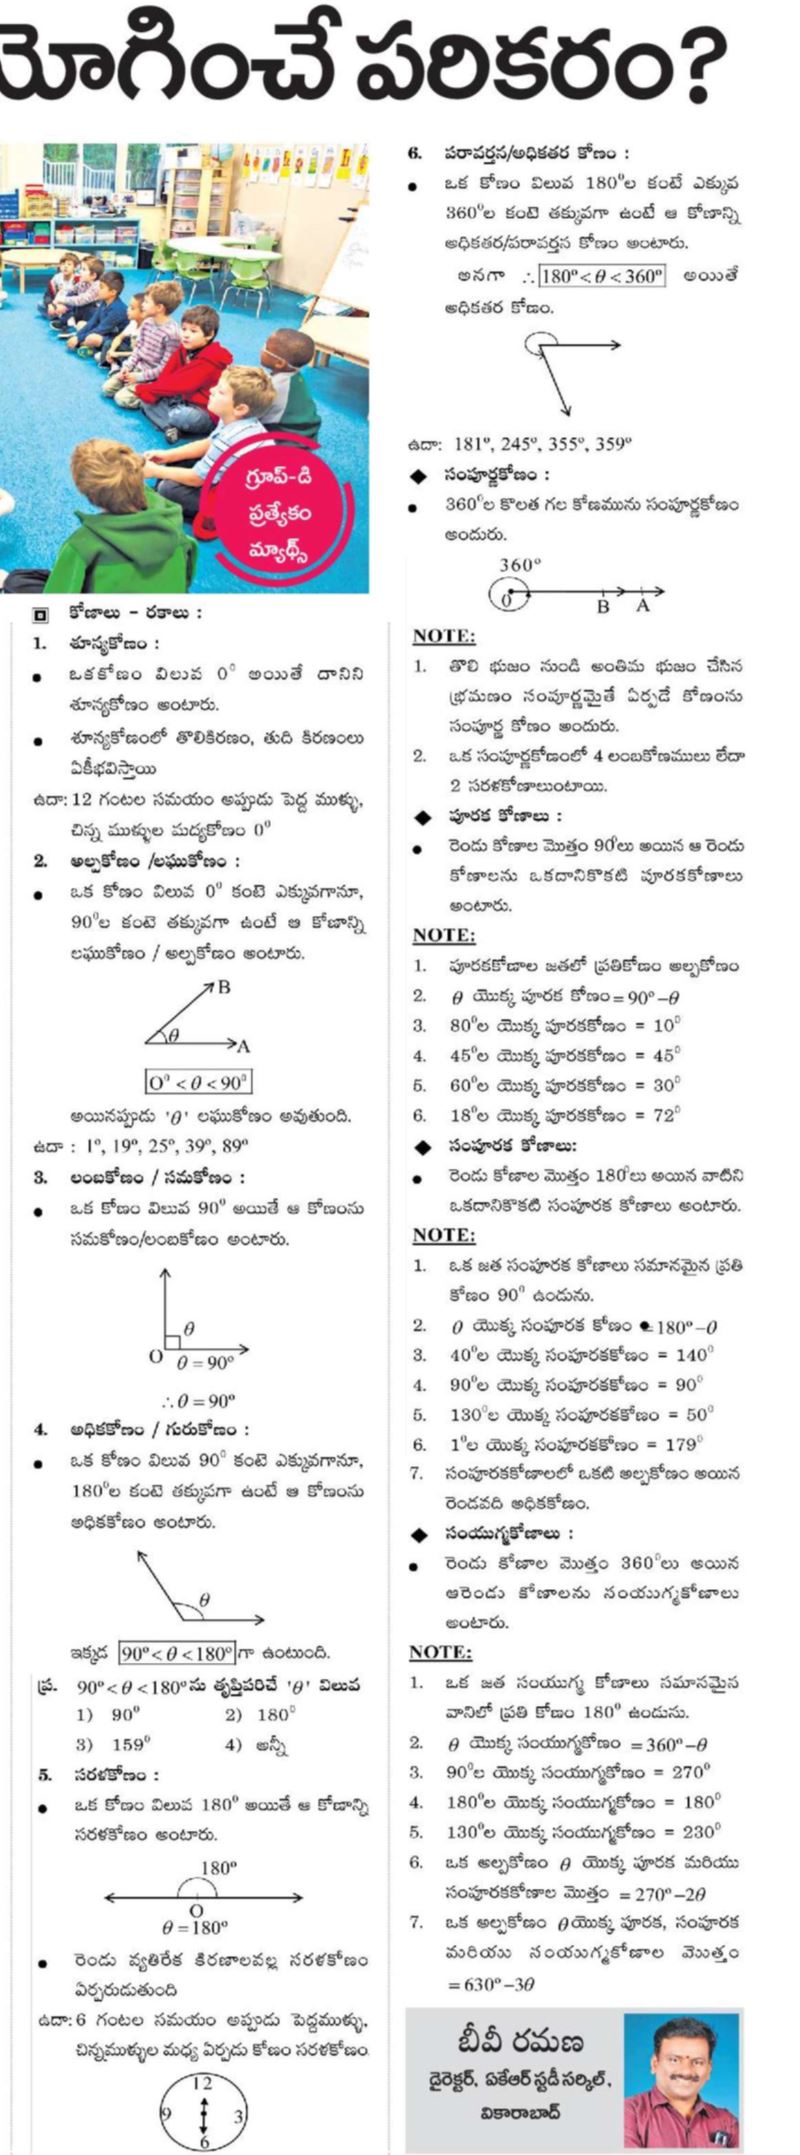 యోగించే పరికరం?
గ్రూప్-డి
ప్రత్యేకం
మ్యాథ్స్
కోణాలు - రకాలు :
1. శూన్యకోణం :
● ఒకకోణం విలువ 0⁰ అయితే దానిని
శూన్యకోణం అంటారు.
● శూన్యకోణంలో తొలికిరణం, తుది కిరణంలు
ఏకీభవిస్తాయి
ఉదా: 12 గంటల సమయం అప్పుడు పెద్ద ముళ్ళు,
చిన్న ముళ్ళుల మధ్యకోణం 0⁰
2. అల్పకోణం /లఘుకోణం :
● ఒక కోణం విలువ 0⁰ కంటె ఎక్కువగానూ,
90⁰ల కంటె తక్కువగా ఉంటే ఆ కోణాన్ని
లఘుకోణం / అల్పకోణం అంటారు.
B
θ
A
O⁰ < θ < 90⁰
అయినప్పుడు 'θ' లఘుకోణం అవుతుంది.
ఉదా : 1º, 19º, 25º, 39º, 89º
3. లంబకోణం / సమకోణం :
● ఒక కోణం విలువ 90⁰ అయితే ఆ కోణంను
సమకోణం/లంబకోణం అంటారు.
θ
O θ = 90º
∴ θ = 90º
4. అధికకోణం / గురుకోణం :
● ఒక కోణం విలువ 90⁰ కంటె ఎక్కువగానూ,
180⁰ల కంటె తక్కువగా ఉంటే ఆ కోణంను
అధికకోణం అంటారు.
θ
ఇక్కడ 90º < θ < 180º గా ఉంటుంది.
ప్ర. 90º < θ < 180º ను తృప్తిపరిచే 'θ' విలువ
1) 90⁰ 2) 180⁰
3) 159⁰ 4) అన్నీ
5. సరళకోణం :
● ఒక కోణం విలువ 180⁰ అయితే ఆ కోణాన్ని
సరళకోణం అంటారు.
180º
O
θ = 180º
● రెండు వ్యతిరేక కిరణాలవల్ల సరళకోణం
ఏర్పరుడుతుంది
ఉదా: 6 గంటల సమయం అప్పుడు పెద్దముళ్ళు,
చిన్నముళ్ళుల మధ్య ఏర్పడు కోణం సరళకోణం.
12
9 3
6
6. పరావర్తన/అధికతర కోణం :
● ఒక కోణం విలువ 180⁰ల కంటే ఎక్కువ
360⁰ల కంటె తక్కువగా ఉంటే ఆ కోణాన్ని
అధికతర/పరావర్తన కోణం అంటారు.
అనగా ∴ 180º < θ < 360º అయితే
అధికతర కోణం.
ఉదా: 181º, 245º, 355º, 359º
◆ సంపూర్ణకోణం :
● 360⁰ల కొలత గల కోణమును సంపూర్ణకోణం
అందురు.
360º
0 B A
NOTE:
1. తొలి భుజం నుండి అంతిమ భుజం చేసిన
భ్రమణం సంపూర్ణమైతే ఏర్పడే కోణంను
సంపూర్ణ కోణం అందురు.
2. ఒక సంపూర్ణకోణంలో 4 లంబకోణములు లేదా
2 సరళకోణాలుంటాయి.
◆ పూరక కోణాలు :
● రెండు కోణాల మొత్తం 90⁰లు అయిన ఆ రెండు
కోణాలను ఒకదానికొకటి పూరకకోణాలు
అంటారు.
NOTE:
1. పూరకకోణాల జతలో ప్రతికోణం అల్పకోణం
2. θ యొక్క పూరక కోణం = 90º – θ
3. 80⁰ల యొక్క పూరకకోణం = 10⁰
4. 45⁰ల యొక్క పూరకకోణం = 45⁰
5. 60⁰ల యొక్క పూరకకోణం = 30⁰
6. 18⁰ల యొక్క పూరకకోణం = 72⁰
◆ సంపూరక కోణాలు:
● రెండు కోణాల మొత్తం 180⁰లు అయిన వాటిని
ఒకదానికొకటి సంపూరక కోణాలు అంటారు.
NOTE:
1. ఒక జత సంపూరక కోణాలు సమానమైన ప్రతి
కోణం 90⁰ ఉండును.
2. θ యొక్క సంపూరక కోణం = 180º – θ
3. 40⁰ల యొక్క సంపూరకకోణం = 140⁰
4. 90⁰ల యొక్క సంపూరకకోణం = 90⁰
5. 130⁰ల యొక్క సంపూరకకోణం = 50⁰
6. 1⁰ల యొక్క సంపూరకకోణం = 179⁰
7. సంపూరకకోణాలలో ఒకటి అల్పకోణం అయిన
రెండవది అధికకోణం.
◆ సంయుగ్మకోణాలు :
● రెండు కోణాల మొత్తం 360⁰లు అయిన
ఆరెండు కోణాలను సంయుగ్మకోణాలు
అంటారు.
NOTE:
1. ఒక జత సంయుగ్మ కోణాలు సమానమైన
వానిలో ప్రతి కోణం 180⁰ ఉండును.
2. θ యొక్క సంయుగ్మకోణం = 360º – θ
3. 90⁰ల యొక్క సంయుగ్మకోణం = 270⁰
4. 180⁰ల యొక్క సంయుగ్మకోణం = 180⁰
5. 130⁰ల యొక్క సంయుగ్మకోణం = 230⁰
6. ఒక అల్పకోణం θ యొక్క పూరక మరియు
సంపూరకకోణాల మొత్తం = 270º – 2θ
7. ఒక అల్పకోణం θ యొక్క పూరక, సంపూరక
మరియు సంయుగ్మకోణాల మొత్తం
= 630º – 3θ
బీవీ రమణ
డైరెక్టర్, ఏకేఆర్ స్టడీ సర్కిల్,
వికారాబాద్